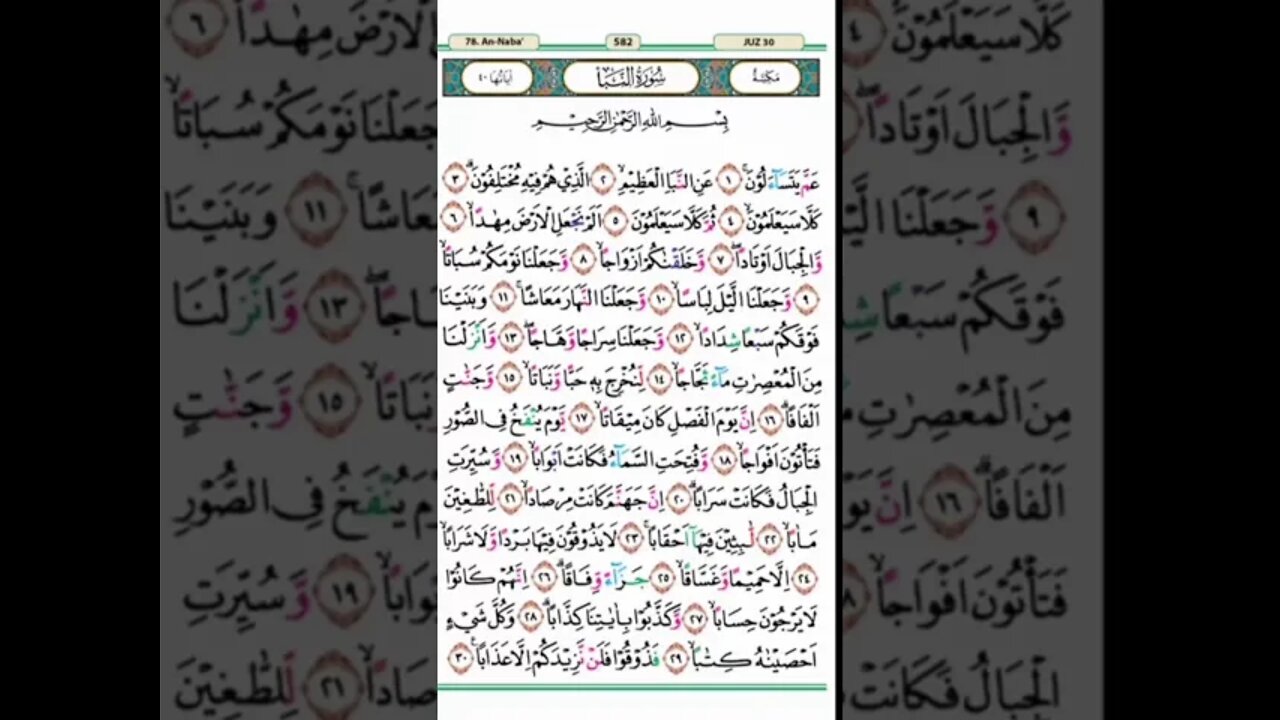 78. An-Naba'
582
JUZ 30
اٰيَاتُهَا ٤٠
سُوْرَةُ النَّبَأ
مَكِيَّةٌ
بِسْمِ اللهِ الرَّحْمٰنِ الرَّحِيْمِ
عَمَّ يَتَسَاۤءَلُوْنَۚ ١ عَنِ النَّبَاِ الْعَظِيْمِۙ ٢ الَّذِيْ هُمْ فِيْهِ مُخْتَلِفُوْنَۗ ٣
كَلَّا سَيَعْلَمُوْنَۙ ٤ ثُمَّ كَلَّا سَيَعْلَمُوْنَ ٥ اَلَمْ نَجْعَلِ الْاَرْضَ مِهٰدًاۙ ٦
وَّالْجِبَالَ اَوْتَادًاۖ ٧ وَّخَلَقْنٰكُمْ اَزْوَاجًاۙ ٨ وَّجَعَلْنَا نَوْمَكُمْ سُبَاتًاۙ
٩ وَّجَعَلْنَا الَّيْلَ لِبَاسًاۙ ١٠ وَّجَعَلْنَا النَّهَارَ مَعَاشًاۚ ١١ وَبَنَيْنَا
فَوْقَكُمْ سَبْعًا شِدَادًاۙ ١٢ وَّجَعَلْنَا سِرَاجًا وَّهَّاجًاۖ ١٣ وَّاَنْزَلْنَا
مِنَ الْمُعْصِرٰتِ مَاۤءً ثَجَّاجًاۙ ١٤ لِّنُخْرِجَ بِهٖ حَبًّا وَّنَبَاتًاۙ ١٥ وَّجَنّٰتٍ
اَلْفَافًاۗ ١٦ اِنَّ يَوْمَ الْفَصْلِ كَانَ مِيْقَاتًاۙ ١٧ يَّوْمَ يُنْفَخُ فِى الصُّوْرِ
فَتَأْتُوْنَ اَفْوَاجًاۙ ١٨ وَّفُتِحَتِ السَّمَاۤءُ فَكَانَتْ اَبْوَابًاۙ ١٩ وَّسُيِّرَتِ
الْجِبَالُ فَكَانَتْ سَرَابًاۗ ٢٠ اِنَّ جَهَنَّمَ كَانَتْ مِرْصَادًاۙ ٢١ لِّلطّٰغِيْنَ
مَاٰبًاۙ ٢٢ لّٰبِثِيْنَ فِيْهَآ اَحْقَابًاۚ ٢٣ لَا يَذُوْقُوْنَ فِيْهَا بَرْدًا وَّلَا شَرَابًاۙ
٢٤ اِلَّا حَمِيْمًا وَّغَسَّاقًاۙ ٢٥ جَزَاۤءً وِّفَاقًاۗ ٢٦ اِنَّهُمْ كَانُوْا
لَا يَرْجُوْنَ حِسَابًاۙ ٢٧ وَّكَذَّبُوْا بِاٰيٰتِنَا كِذَّابًاۗ ٢٨ وَكُلَّ شَيْءٍ
اَحْصَيْنٰهُ كِتٰبًاۙ ٢٩ فَذُوْقُوْا فَلَنْ نَّزِيْدَكُمْ اِلَّا عَذَابًاۚ ٣٠